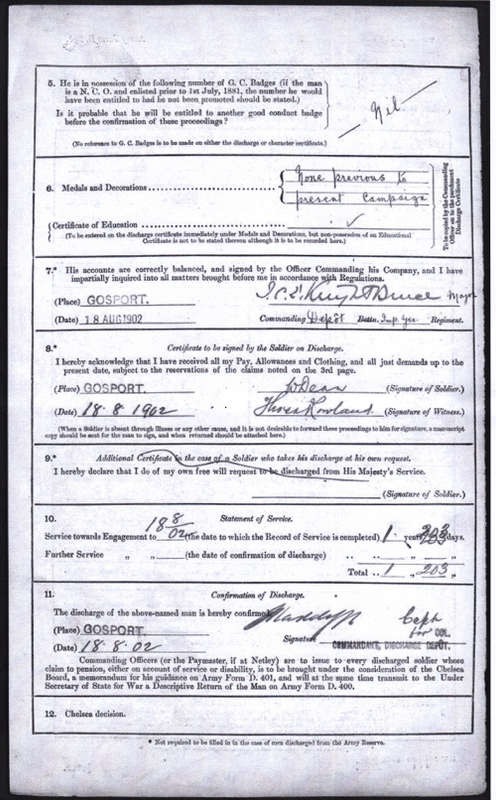 5. He is in possession of the following number of G. C. Badges (if the man
is a N. C. O. and enlisted prior to 1st July, 1881, the number he would
have been entitled to had he not been promoted should be stated.)
Is it probable that he will be entitled to another good conduct badge
before the confirmation of these proceedings?
Nil
(No reference to G. C. Badges is to be made on either the discharge or character certificate.)
6. Medals and Decorations
None previous to
present Campaign
Certificate of Education
(To be entered on the discharge certificate immediately under Medals and Decorations, but non-possession of an Educational
Certificate is not to be stated thereon although it is to be recorded here.)
To be copied by the Commanding
Officer on to the parchment
Discharge Certificate
7.* His accounts are correctly balanced, and signed by the Officer Commanding his Company, and I have
impartially inquired into all matters brought before me in accordance with Regulations.
(Place) GOSPORT. Bruce Major
(Date) 18 AUG 1902 Commanding Depôt Battn. Imp. Yeo Regiment.
8.* Certificate to be signed by the Soldier on Discharge.
I hereby acknowledge that I have received all my Pay, Allowances and Clothing, and all just demands up to the
present date, subject to the reservations of the claims noted on the 3rd page.
(Place) GOSPORT. Dean (Signature of Soldier.)
(Date) 18.8.1902 Rowland (Signature of Witness.)
(When a Soldier is absent through illness or any other cause, and it is not desirable to forward these proceedings to him for signature, a manuscript
copy should be sent for the man to sign, and when returned should be attached here.)
9.* Additional Certificate in the case of a Soldier who takes his discharge at his own request.
I hereby declare that I do of my own free will request to be discharged from His Majesty's Service.
(Signature of Soldier.)
10. Statement of Service.
Service towards Engagement to 18/8/02 (the date to which the Record of Service is completed) 1 years 203 days.
Further Service " " (the date of confirmation of discharge) " "
Total 1 " 203 "
11. Confirmation of Discharge.
The discharge of the above-named man is hereby confirmed
(Place) GOSPORT. Signature Capt
for COL.
(Date) 18.8.02 COMMANDANT, DISCHARGE DEPÔT.
Commanding Officers (or the Paymaster, if at Netley) are to issue to every discharged soldier whose
claim to pension, either on account of service or disability, is to be brought under the consideration of the Chelsea
Board, a memorandum for his guidance on Army Form D. 401, and will at the same time transmit to the Under
Secretary of State for War a Descriptive Return of the Man on Army Form D. 400.
12. Chelsea decision.
* Not required to be filled in in the case of men discharged from the Army Reserve.